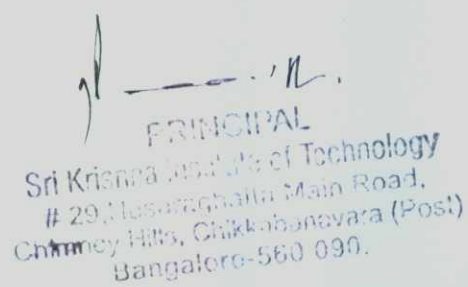 PRINCIPAL
Sri Krishna Institute of Technology
# 29, Hesaraghatta Main Road,
Chimney Hills, Chikkabanavara (Post)
Bangalore-560 090.